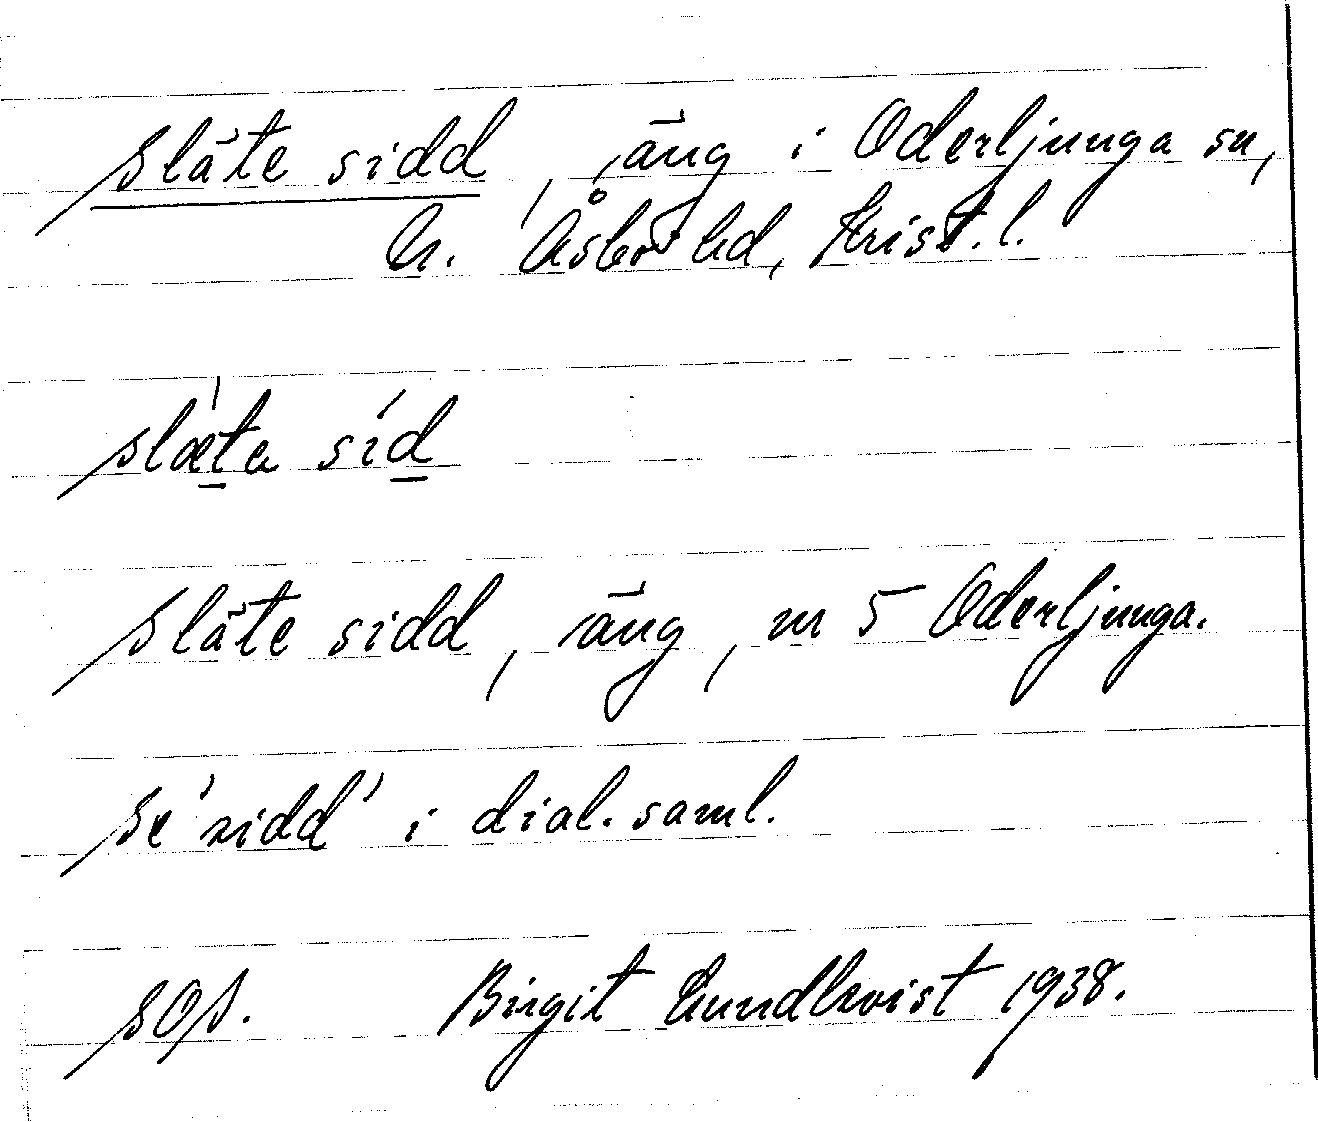 Släte sidd, äng i Oderljunga sn,
N. Åsbo hd, Krist. l.
slæta sid
Släte sidd, äng, m 5 Oderljunga.
Se 'sidd' i dial. saml.
SOS. Birgit Lundkvist 1938.